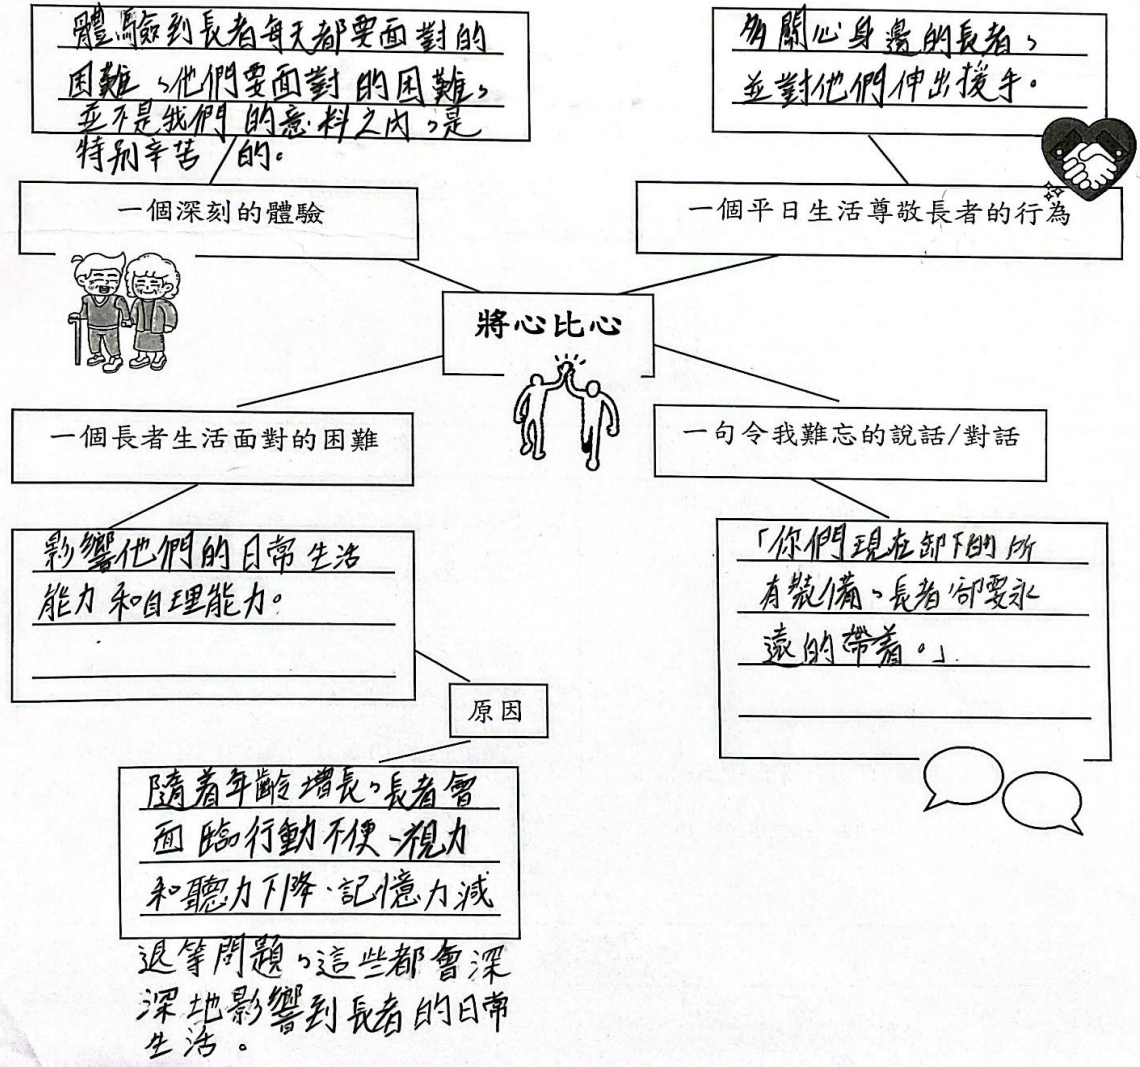 體驗到長者每天都要面對的
困難，他們要面對的困難，
並不是我們的意料之內，是
特別辛苦的。
一個深刻的體驗
多關心身邊的長者，
並對他們伸出援手。
一個平日生活尊敬長者的行為
將心比心
一個長者生活面對的困難
影響他們的日常生活
能力和自理能力。
原因
隨着年齡增長，長者會
面臨行動不便、視力
和聽力下降、記憶力減
退等問題，這些都會深
深地影響到長者的日常
生活。
一句令我難忘的說話/對話
「你們現在卸下的所
有裝備，長者卻要永
遠的帶着。」